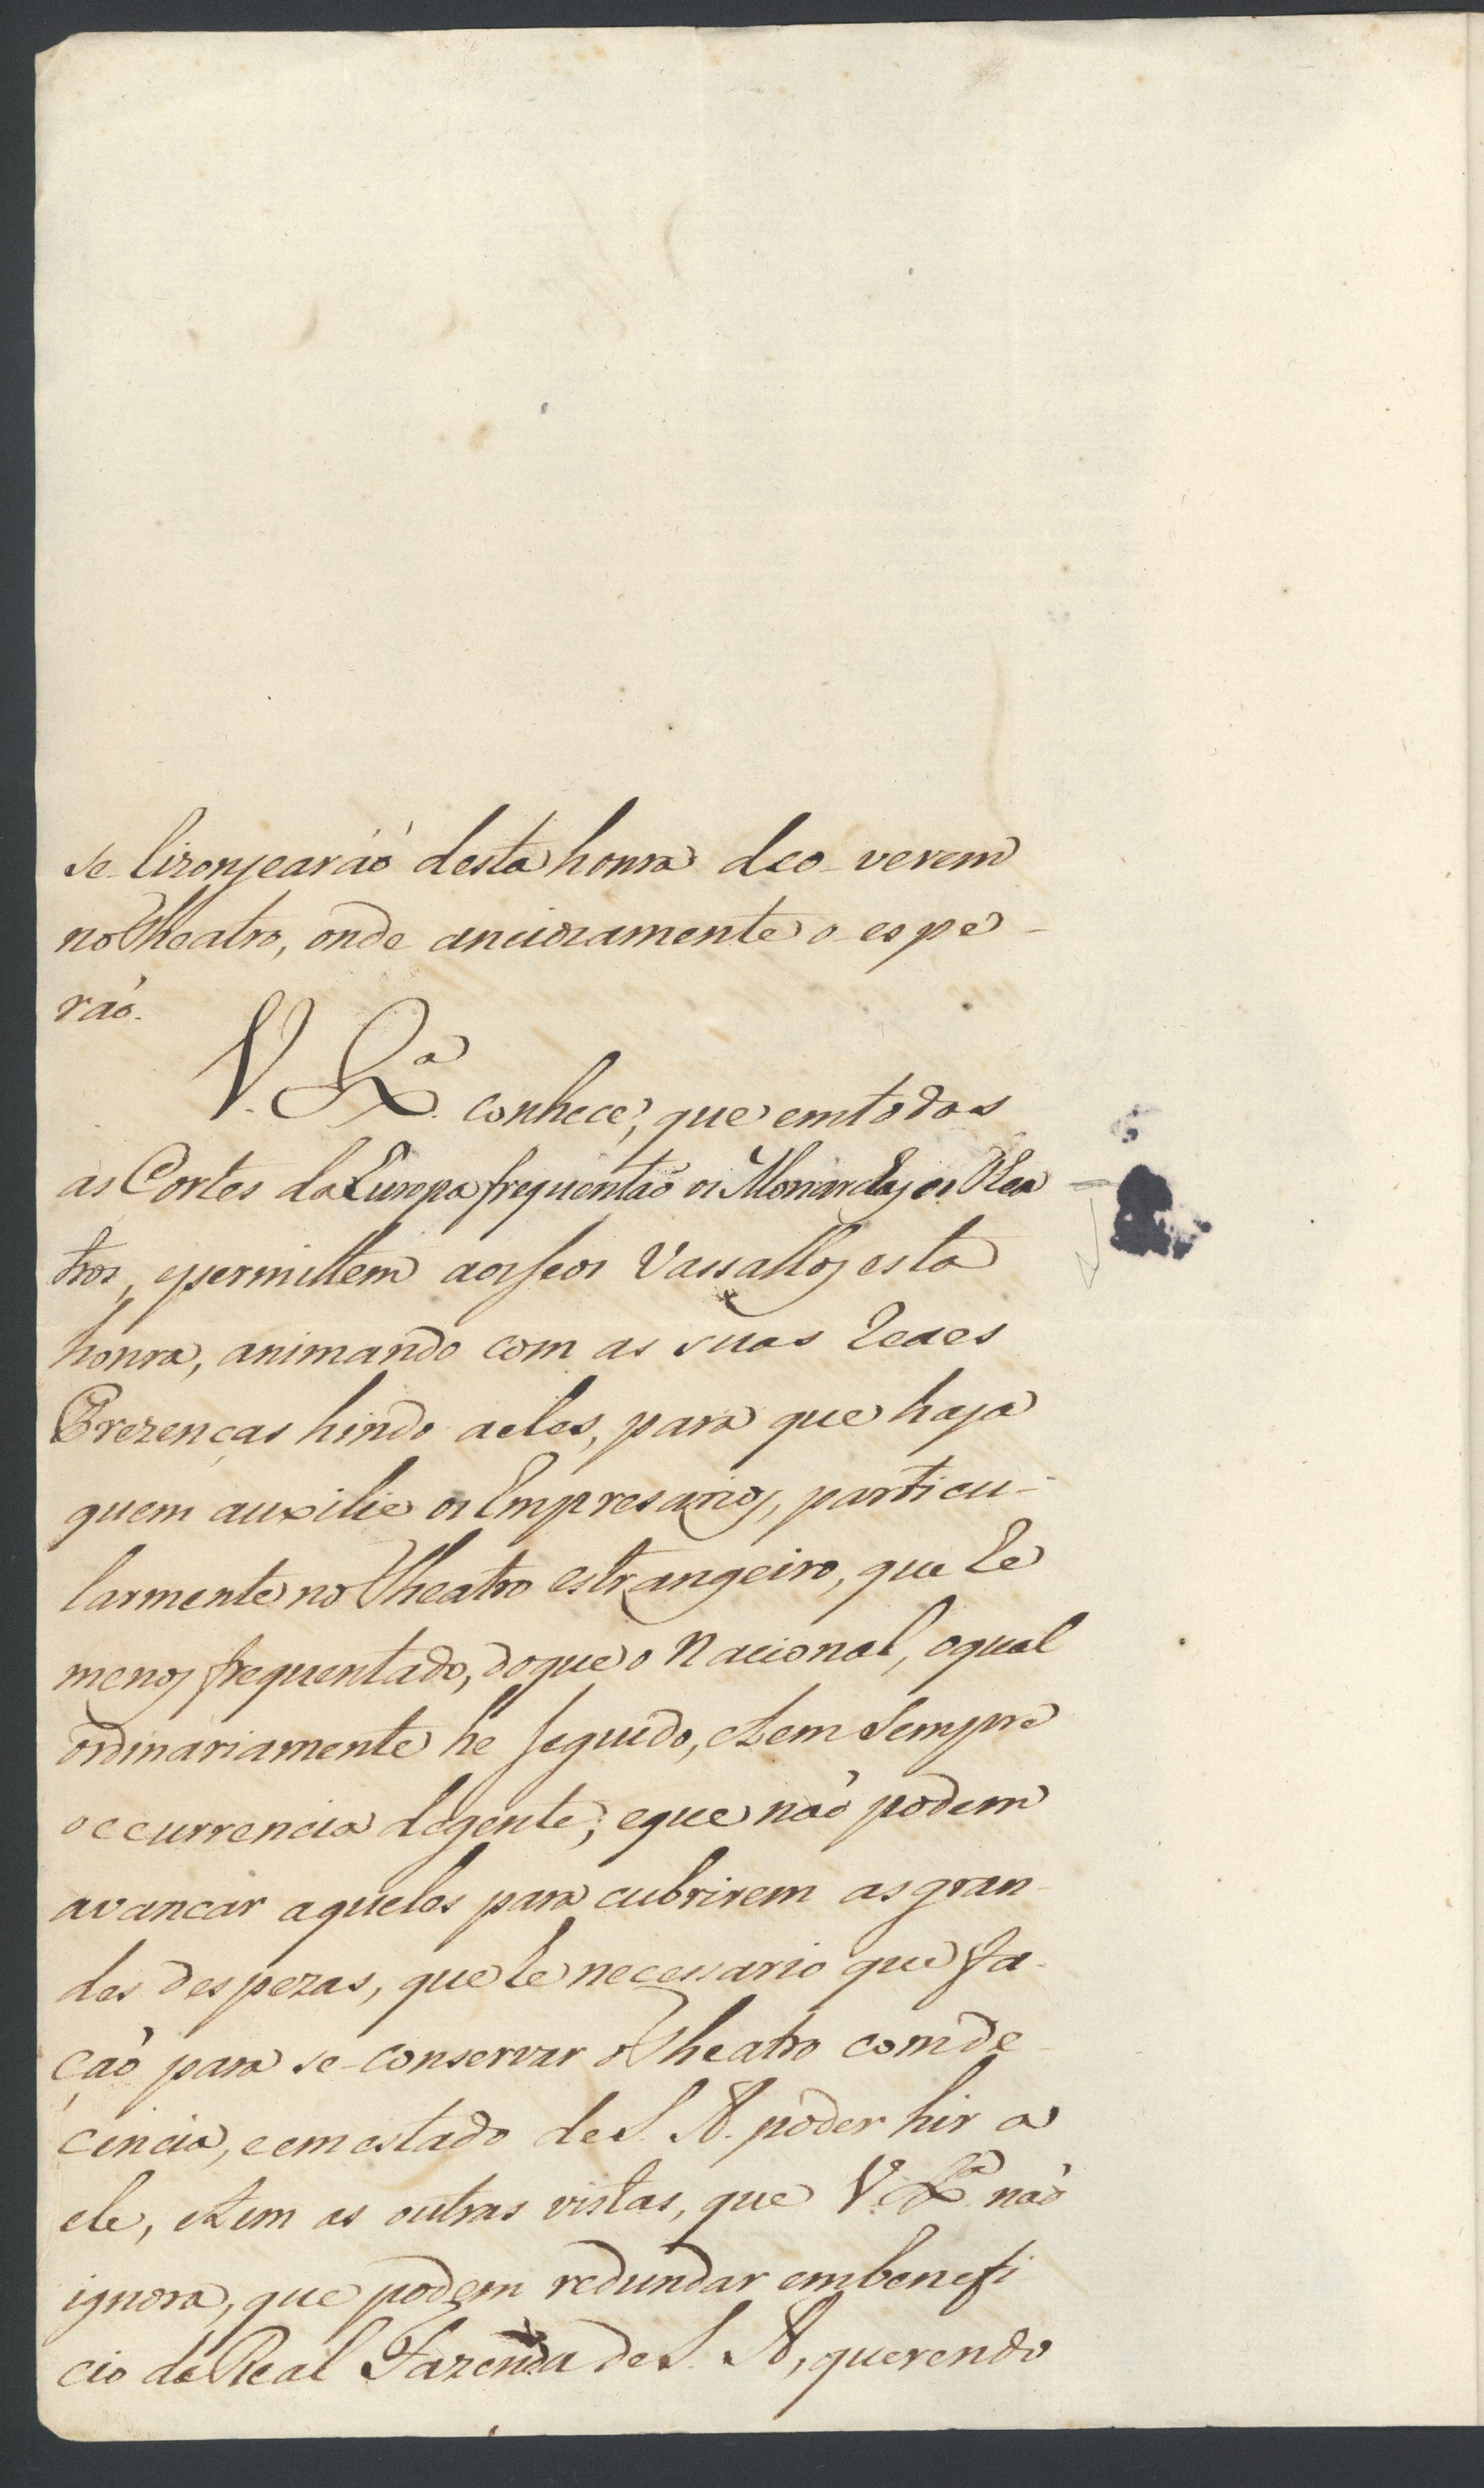 se lizonjearáõ desta honra de o verem
no Theatro, onde anciozamente o espe-
raõ.
V. Exª. conhece, que em todas
as Cortes da Europa frequentaõ os Monarchas os Thea
tros, e permittem aos seos Vassallos esta
honra, animando com as suas Reaes
Prezenças hindo a eles, para que haja
quem auxilie os Empresarios, particu-
larmente no Theatro estrangeiro, que he
menos frequentado, do que o Nacional, o qual
ordinariamente he seguido, e tem sempre
occurrencia de gente; e que naõ podem
avancar aqueles para cubrirem as gran-
des despezas, que he necessario que fa-
çaõ para se conservar o Theatro com de-
cencia, e em estado de S. A. poder hir a
ele, e tem as outras vistas, que V. Exª naõ
ignora, que podem redundar em benefi
cio da Real Fazenda de S. A., querendo